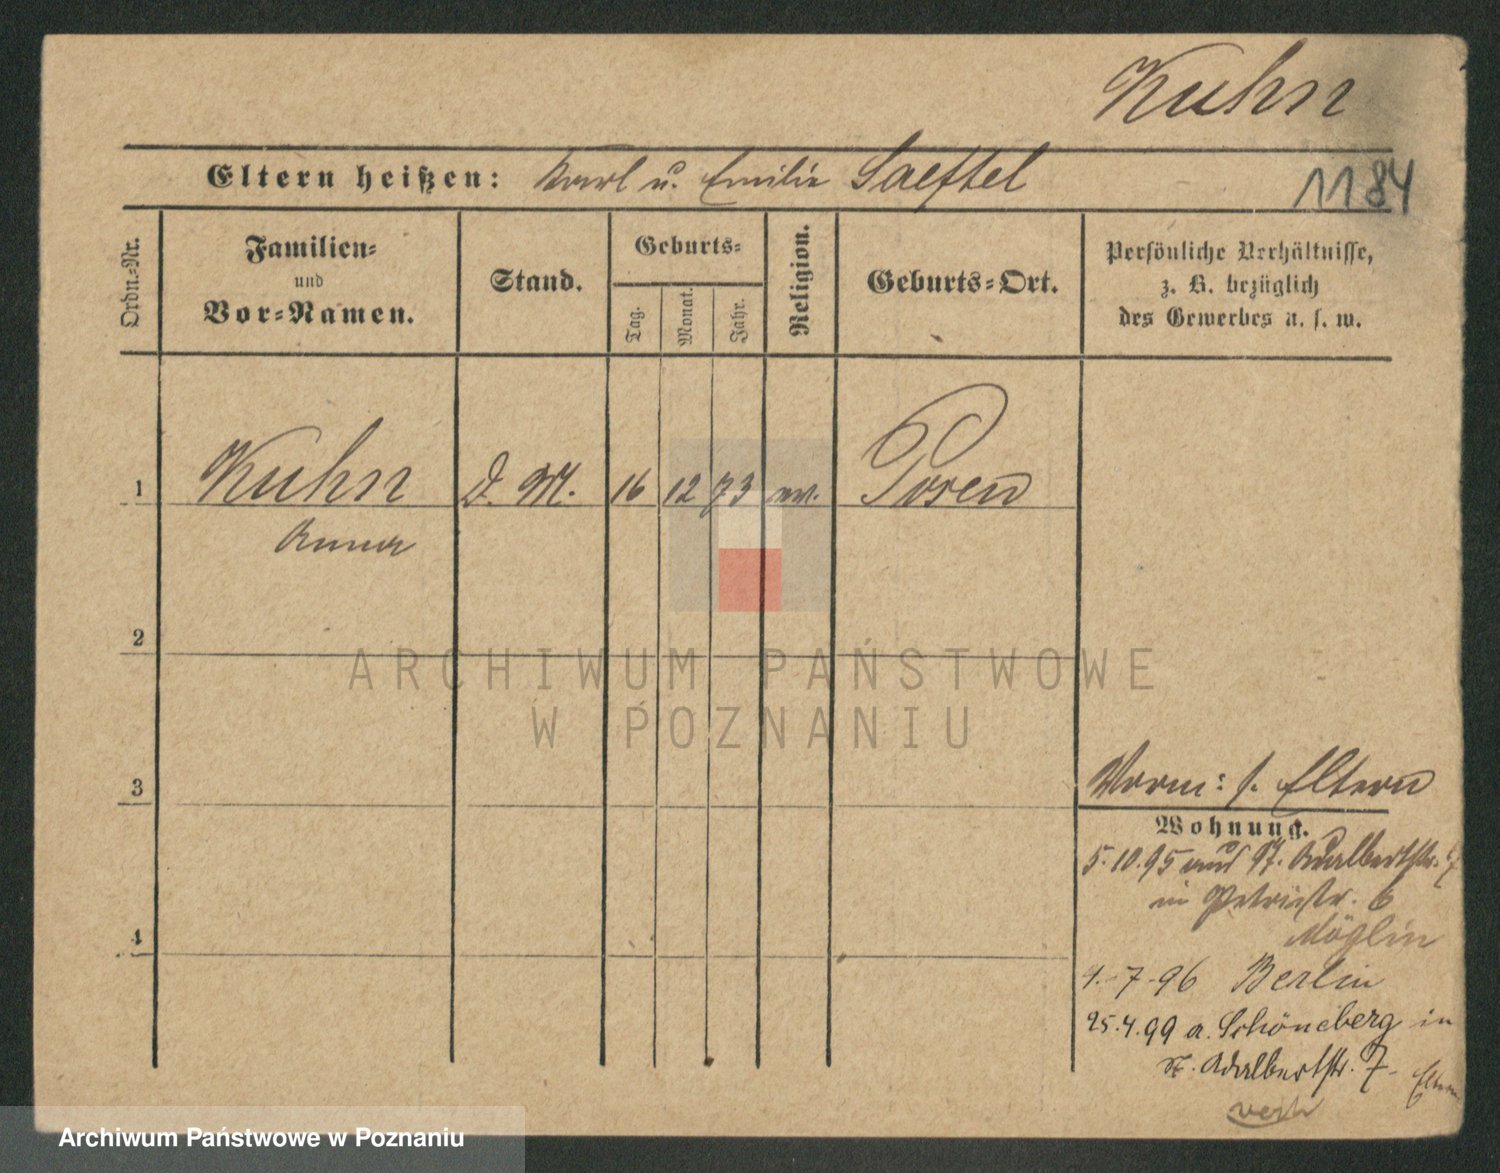 Kuhn
Eltern heißen: Karl u. Emilie Saeftel
1184
Ordn.-Nr.
Familien-
und
Vor-Namen.
Stand.
Geburts-
Tag.
Monat.
Jahr.
Religion.
Geburts-Ort.
Persönliche Verhältnisse,
z. B. bezüglich
des Gewerbes u. s. w.
1 Kuhn D. M. 16 12 73 ev. Posen
Anna
2
3
4
Vorm: s. Eltern
Wohnung.
5.10.95 aus St. Adalbertstr. 7
in Petristr. 6
Möglin
4.-7-96 Berlin
25.4.99 a. Schöneberg in
St. Adalbertstr. 7. Eltern
verh
ARCHIWUM PAŃSTWOWE
W POZNANIU
Archiwum Państwowe w Poznaniu